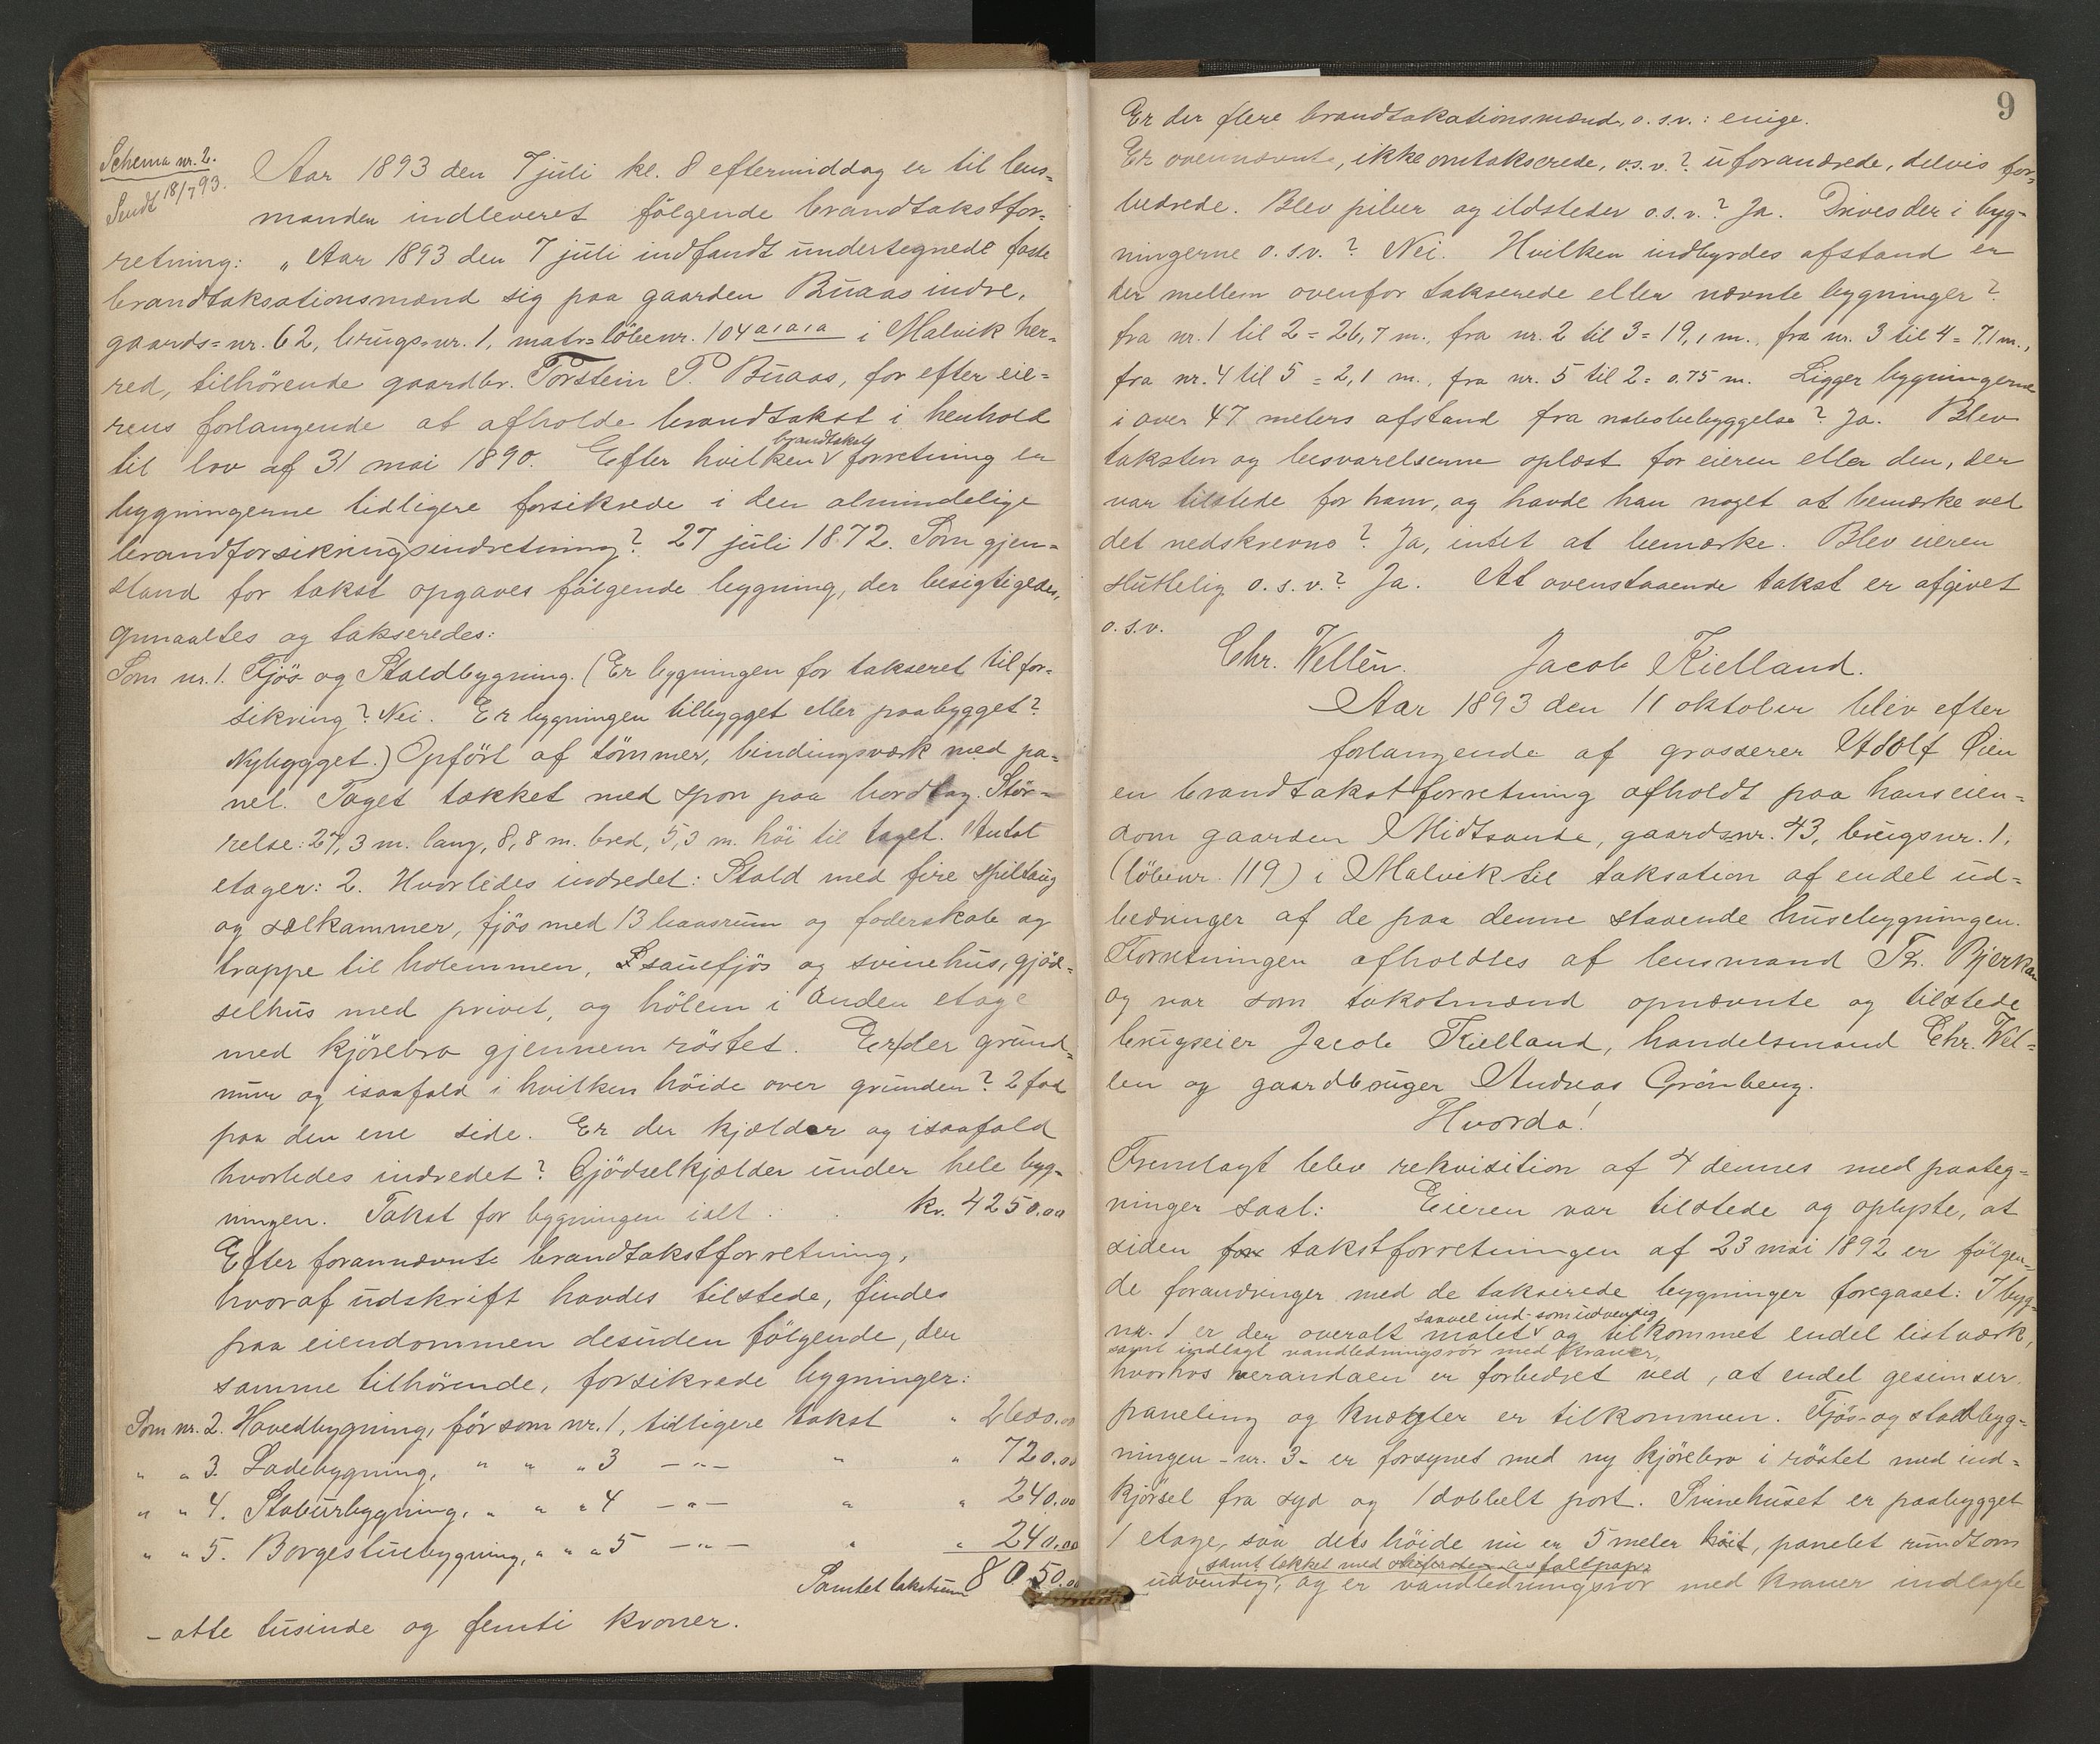 Schema nr. 2.
Sendt 18/7 93.
Aar 1893 den 7 juli kl. 8 eftermiddag er til lens=
manden indleveret følgende brandtakstfor=
retning: „Aar 1893 den 7 juli indfandt undertegnede faste
brandtaksationsmænd sig paa gaarden Buaas indre,
gaards=nr. 62, brugs=nr. 1, matr=løbenr. 104 a,a,a i Malvik her=
red, tilhørende gaardbr. Torstein P. Buaas, for efter eie=
rens forlangende at afholde brandtakst i henhold
til lov af 31 mai 1890. Efter hvilken brandtakst forretning er
bygningerne tidligere forsikrede i den almindelige
brandforsikringsindretning? 27 juli 1872. Som gjen=
stand for takst opgaves følgende bygning, der besigtigedes,
opmaaltes og takseredes:
Som nr. 1. Fjøs og Staldbygning. (Er bygningen før takseret til for=
sikring? Nei. Er bygningen tilbygget eller paabygget?
Nybygget.) Opført af tømmer, bindingsværk med pa=
nel. Taget tækket med spon paa bordtag. Stør=
relse: 27,3 m. lang, 8,8 m. bred, 5,3 m. høi til taget. Antal
etager: 2. Hvorledes indredet: Stald med fire spiltaug
og sælkammer, fjøs med 13 baasrum og foderskab og
trappe til hølemmen, sauefjøs og svinehus, gjød=
selhus med privet, og hølem i anden etage
med kjørebro gjennem røstet. Er der grund=
mur og isaafald i hvilken høide over grunden? 2 fod
paa den ene side. Er der kjælder og isaafald
hvorledes indredet? Gjødselkjælder under hele byg=
ningen. Takst for bygningen ialt . . kr. 4250.00
Efter forannævnte brandtakstforretning,
hvoraf udskrift havdes tilstede, findes
paa eiendommen desuden følgende, den
samme tilhørende, forsikrede bygninger:
Som nr. 2. Hovedbygning, før som nr. 1, tidligere takst " 2600.00
" " 3. Ladebygning, " " " 3 — " — " " 720.00
" " 4. Staburbygning, " " " 4 — " — " " 240.00
" " 5. Borgestuebygning, " " " 5 — " — " " 240.00
Samlet takstsum 8050.00
— otte tusinde og femti kroner.
9
Er der flere brandtaksationsmænd, o.s.v.: enige.
Er ovennævnte, ikke omtakserede, o.s.v.? uforandrede, delvis for=
bedrede. Blev piber og ildsteder o.s.v.? Ja. Drives der i byg=
ningerne o.s.v.? Nei. Hvilken indbyrdes afstand er
der mellem ovenfor takserede eller nævnte bygninger?
fra nr. 1 til 2 = 26,7 m., fra nr. 2 til 3 = 19,1 m., fra nr. 3 til 4 = 7,1 m.,
fra nr. 4 til 5 = 2,1 m., fra nr. 5 til 2 = 0.75 m. Ligger bygningerne
i over 47 meters afstand fra nabobebyggelse? Ja. Blev
taksten og besvarelserne oplæst for eieren eller den, der
var tilstede for ham, og havde han noget at bemærke ved
det nedskrevne? Ja, intet at bemærke. Blev eieren
sluttelig o.s.v.? Ja. At ovenstaaende takst er afgivet
o.s.v.
Chr. Wellén. Jacob Kielland.
Aar 1893 den 11 oktober blev efter
forlangende af grosserer Adolf Øien
en brandtakstforretning afholdt paa hans eien=
dom gaarden Midtsande, gaards=nr. 43, brugsnr. 1,
(løbenr. 119) i Malvik til taksation af endel ud=
bedringer af de paa denne staaende husebygningen.
Forretningen afholdtes af lensmand Th. Bjerkan
og var som takstmænd opnævnte og tilstede
brugseier Jacob Kielland, handelsmand Chr. Wel=
len og gaardbruger Andreas Grønberg.
Hvorda!
Fremlagt blev rekvisition af 4 dennes med paateg=
ninger saal: Eieren var tilstede og oplyste, at
siden for takstforretningen af 23 mai 1892 er følgen=
de forandringer med de takserede bygninger foregaaet: I byg=
saavel ind- som udvendig
nr. 1 er den overalt malet og tilkommet endel listværk,
samt indlagt vandledningsrør med kraner,
hvorhos verandaen er forbedret ved, at endel gesimser,
paneling og knægter er tilkommen. Fjøs- og staldbyg=
ningen - nr. 3 - er forsynet med ny kjørebro i røstet med ind=
kjørsel fra syd og 1 dobbelt port. Svinehuset er paabygget
1 etage, saa dets høide nu er 5 meter høit, panelet rundtom
samt tækket med asfaltpapir
udvendig, og er vandledningsrør med kraner indlagte